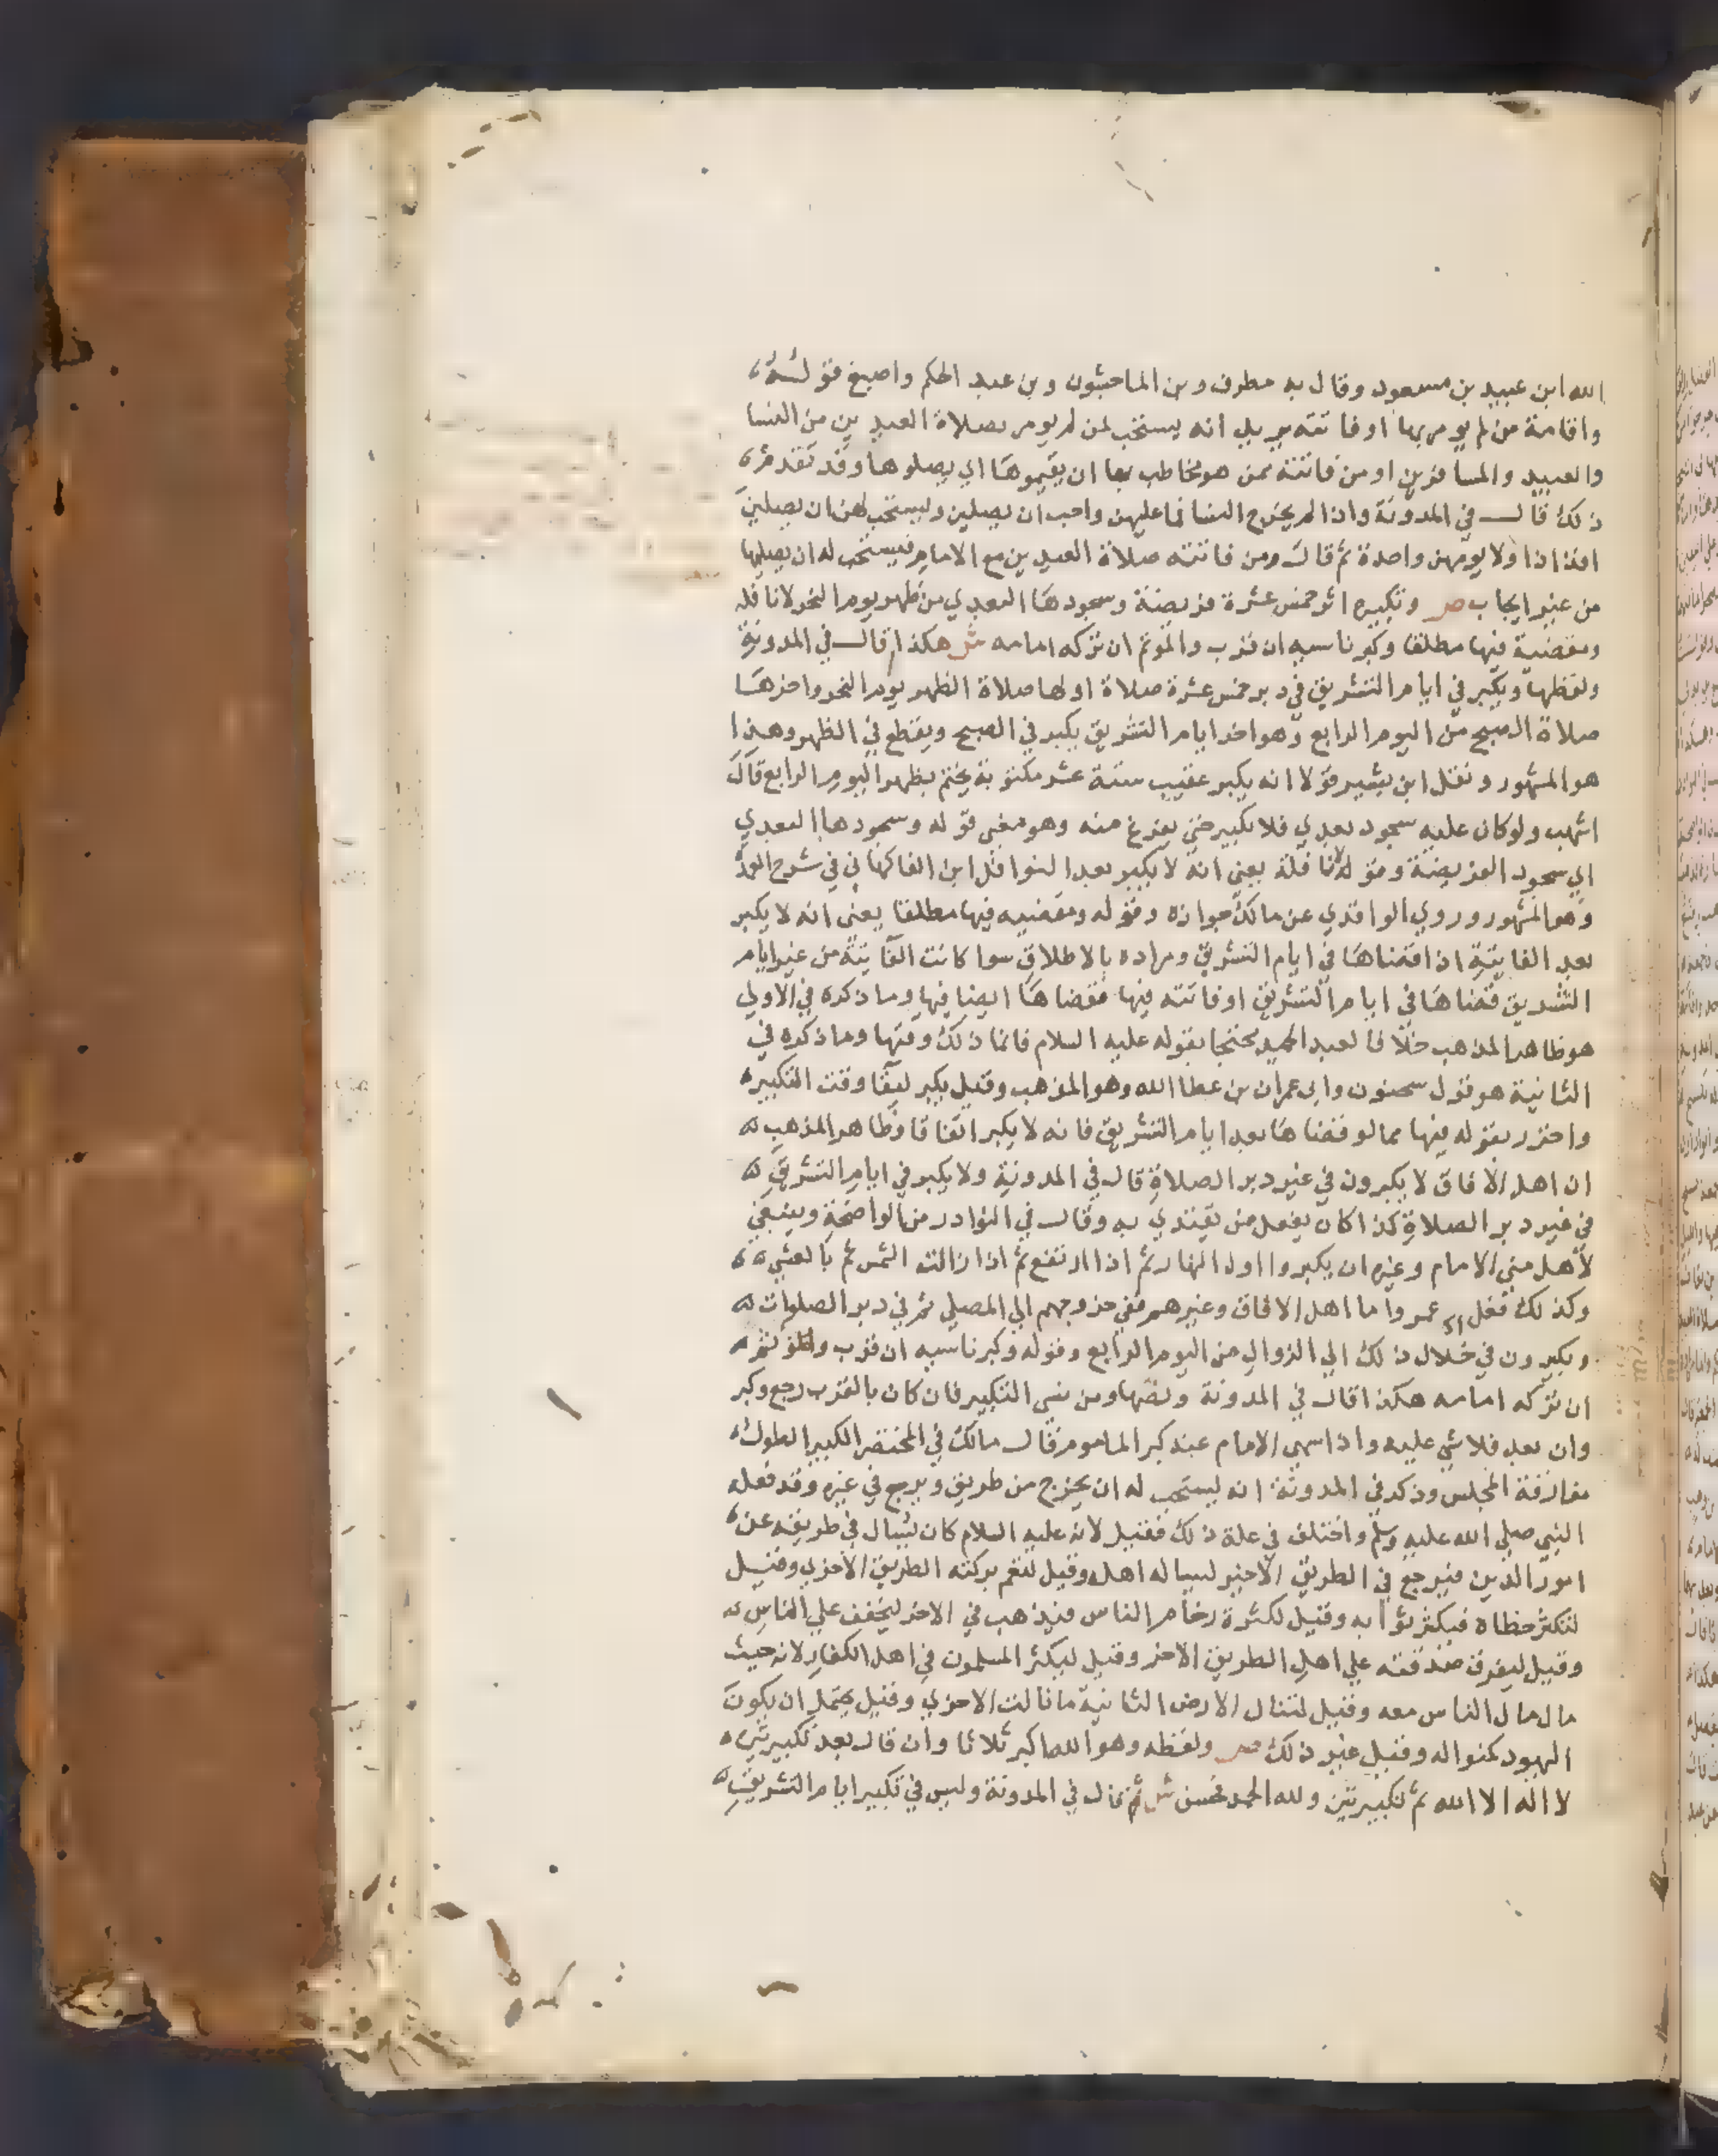 الله ابن عبيد بن مسعود وقال به مطرف وبن الماجشون وبن عبد الحكم واصبغ قوله
واقامة من لم يومر بها او فاتته يريد انه يستحب لمن لم يومر بصلاة العيدين من النسا
والعبيد والمسافرين او من فاتته ممن هو مخاطب بها ان يقيموها اي يصلوها وقد تقدم
ذلك قال في المدونة واذا لم يخرج النسا فما عليهن واجب ان يصلين ويستحب لهن ان يصلين
افذاذا ولا يومهن واحدة ثم قال ومن فاتته صلاة العيدين مع الامام فيستحب له ان يصليها
من غير ايجاب ص وتكبيره اثر خمس عشرة فريضة وسجودها البعدي من ظهر يوم النحر لا نافلة
ومقضية فيها مطلقا وكبر ناسيه ان قرب والموتم ان تركه امامه ش هكذا قال في المدونة
ولفظها ويكبر في ايام التشريق في دبر خمس عشرة صلاة اولها صلاة الظهر يوم النحر واخرها
صلاة الصبح من اليوم الرابع وهو اخر ايام التشريق يكبر في الصبح ويقطع في الظهر وهذا
هو المشهور ونقل ابن بشير قولا انه يكبر عقيب ستة عشر مكتوبة يختم بظهر اليوم الرابع قال
اشهب ولو كان عليه سجود بعدي فلا يكبر حتى يفرغ منه وهو معنى قوله وسجودها البعدي
اي سجود الفريضة وقوله لا نافلة يعني انه لا يكبر بعد النوافل ابن الفاكهاني في شرح العمدة
وهو المشهور وروي الواقدي عن مالك جوازه وقوله ومقضيه فيها مطلقا يعني انه لا يكبر
بعد الفايتة اذا قضاها في ايام التشريق ومراده بالاطلاق سوا كانت الفايتة من غير ايام
التشريق قضاها في ايام التشريق او فاتته فيها فقضاها ايضا فيها وما ذكره في الاولي
هو ظاهر المذهب خلافا لعبد الحميد محتجا بقوله عليه السلام فانما ذلك وقتها وما ذكره في
الثانية هو قول سحنون وابي عمران بن عطا الله وهو المذهب وقيل يكبر لبقا وقت التكبير
واحترز بقوله فيها مما لو قضاها بعد ايام التشريق فانه لا يكبر اتفاقا وظاهر المذهب
ان اهل الافاق لا يكبرون في غير دبر الصلاة قال في المدونة ولا يكبر في ايام التشريق
في غير دبر الصلاة كذا كان يفعل من يقتدي به وقال في النوادر من الواضحة وينبغي
لأهل مني الامام وغيره ان يكبروا اول النهار ثم اذا ارتفع ثم اذا زالت الشمس ثم بالعشي
وكذلك فعل عمر واما اهل الافاق وغيرهم ففي خروجهم الي المصلي ثم في دبر الصلوات
ويكبرون في خلال ذلك الي الزوال من اليوم الرابع وقوله وكبر ناسيه ان قرب والموتم
ان تركه امامه هكذا قال في المدونة ونصها ومن نسي التكبير فان كان بالقرب رجع وكبر
وان بعد فلا شي عليه واذا سهى الامام عنه كبر الماموم قال مالك في المختصر الكبير الطول
مفارقة المجلس وذكر في المدونة انه يستحب له ان يخرج من طريق ويرجع في غيره وقد فعله
النبي صلي الله عليه وسلم واختلف في علة ذلك فقيل لانه عليه السلام كان يسال في طريقه عن
امور الدين فيرجع في الطريق الاخير ليساله اهله وقيل لتعم بركته الطريق الاخري وقيل
لتكثر خطاه فيكثر ثوابه وقيل لكثرة زحام الناس فيذهب في الاخر ليخفف علي الناس
وقيل ليفرق صدقته علي اهل الطريق الاخر وقيل ليكثر المسلمون في اهل الكفار لانه حيث
مال مال الناس معه وقيل لتنال الارض الثانية ما نالت الاخري وقيل يحتمل ان يكون
اليهود كمنوا له وقيل غير ذلك ص ولفظه وهو الله اكبر ثلاثا وان قال بعد تكبيرتين
لا اله الا الله ثم تكبيرتين ولله الحمد فحسن ش ثم قال في المدونة وليس في تكبير ايام التشريق